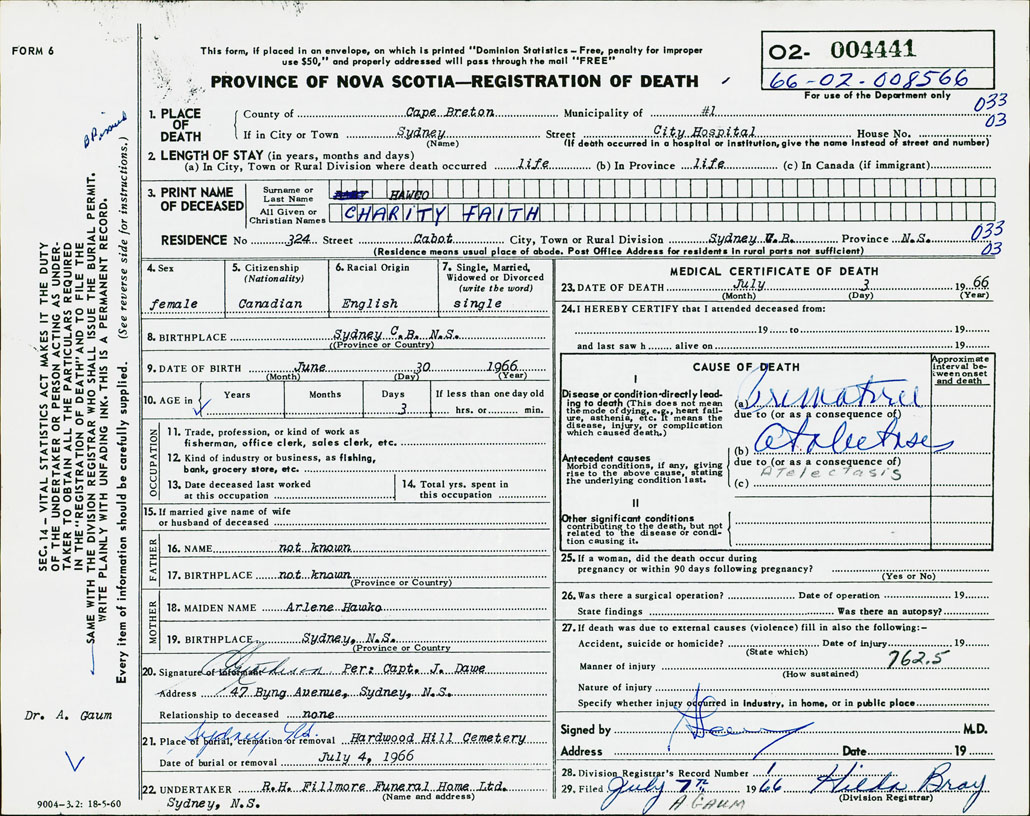 FORM 6
This form, if placed in an envelope, on which is printed "Dominion Statistics – Free, penalty for improper
use $50," and properly addressed will pass through the mail "FREE"
PROVINCE OF NOVA SCOTIA—REGISTRATION OF DEATH
02- 004441
66-02-008566
For use of the Department only
033
03
1. PLACE OF DEATH
County of Cape Breton Municipality of #1
If in City or Town Sydney Street City Hospital House No.
(Name) (If death occurred in a hospital or institution, give the name instead of street and number)
2. LENGTH OF STAY (in years, months and days)
(a) In City, Town or Rural Division where death occurred life (b) In Province life (c) In Canada (if immigrant)
3. PRINT NAME OF DECEASED
Surname or Last Name HAWCO
All Given or Christian Names CHARITY FAITH
RESIDENCE No 324 Street Cabot City, Town or Rural Division Sydney C.B. Province N.S.
033
03
(Residence means usual place of abode. Post Office Address for residents in rural parts not sufficient)
4. Sex
female
5. Citizenship
(Nationality)
Canadian
6. Racial Origin
English
7. Single, Married,
Widowed or Divorced
(write the word)
single
8. BIRTHPLACE Sydney C.B. N.S.
((Province or Country)
9. DATE OF BIRTH June 30 1966
(Month) (Day) (Year)
10. AGE in Years Months Days If less than one day old
3 hrs. or min.
OCCUPATION
11. Trade, profession, or kind of work as
fisherman, office clerk, sales clerk, etc.
12. Kind of industry or business, as fishing,
bank, grocery store, etc.
13. Date deceased last worked
at this occupation
14. Total yrs. spent in
this occupation
15. If married give name of wife
or husband of deceased
FATHER
16. NAME not known
17. BIRTHPLACE not known
(Province or Country)
MOTHER
18. MAIDEN NAME Arlene Hawko
19. BIRTHPLACE Sydney, N.S.
(Province or Country
20. Signature of informant Per: Capt. J. Dawe
Address 47 Byng Avenue, Sydney, N.S.
Relationship to deceased none
Sydney N.S.
21. Place of burial, cremation or removal Hardwood Hill Cemetery
Date of burial or removal July 4, 1966
22. UNDERTAKER R.H. Fillmore Funeral Home Ltd.
(Name and address)
Sydney, N.S.
9004-3.2: 18-5-60
MEDICAL CERTIFICATE OF DEATH
23. DATE OF DEATH July 3 1966
(Month) (Day) (Year)
24. I HEREBY CERTIFY that I attended deceased from:
19 to 19
and last saw h alive on 19
CAUSE OF DEATH
Approximate
interval be-
tween onset
and death
I
Disease or condition directly lead-
ing to death (This does not mean
the mode of dying, e.g., heart fail-
ure, asthenia, etc. It means the
disease, injury, or complication
which caused death.)
(a)
due to (or as a consequence of)
Antecedent causes
Morbid conditions, if any, giving
rise to the above cause, stating
the underlying condition last.
(b)
due to (or as a consequence of)
Atelectasis
(c)
II
Other significant conditions
contributing to the death, but not
related to the disease or condi-
tion causing it.
25. If a woman, did the death occur during
pregnancy or within 90 days following pregnancy?
(Yes or No)
26. Was there a surgical operation? Date of operation 19
State findings Was there an autopsy?
27. If death was due to external causes (violence) fill in also the following:–
Accident, suicide or homicide? Date of injury 19
(State which)
762.5
Manner of injury
(How sustained)
Nature of injury
Specify whether injury occurred in industry, in home, or in public place
Signed by M.D.
Address Date 19
28. Division Registrar's Record Number 1
29. Filed July 7th 1966 Hilda Bray
(Division Registrar)
A GAUM
SEC. 14 – VITAL STATISTICS ACT MAKES IT THE DUTY
OF THE UNDERTAKER OR PERSON ACTING AS UNDER-
TAKER TO OBTAIN ALL THE PARTICULARS REQUIRED
IN THE "REGISTRATION OF DEATH" AND TO FILE THE
SAME WITH THE DIVISION REGISTRAR WHO SHALL ISSUE THE BURIAL PERMIT.
WRITE PLAINLY WITH UNFADING INK. THIS IS A PERMANENT RECORD.
Every item of information should be carefully supplied. (See reverse side for instructions.)
BP issued
Dr. A. Gaum